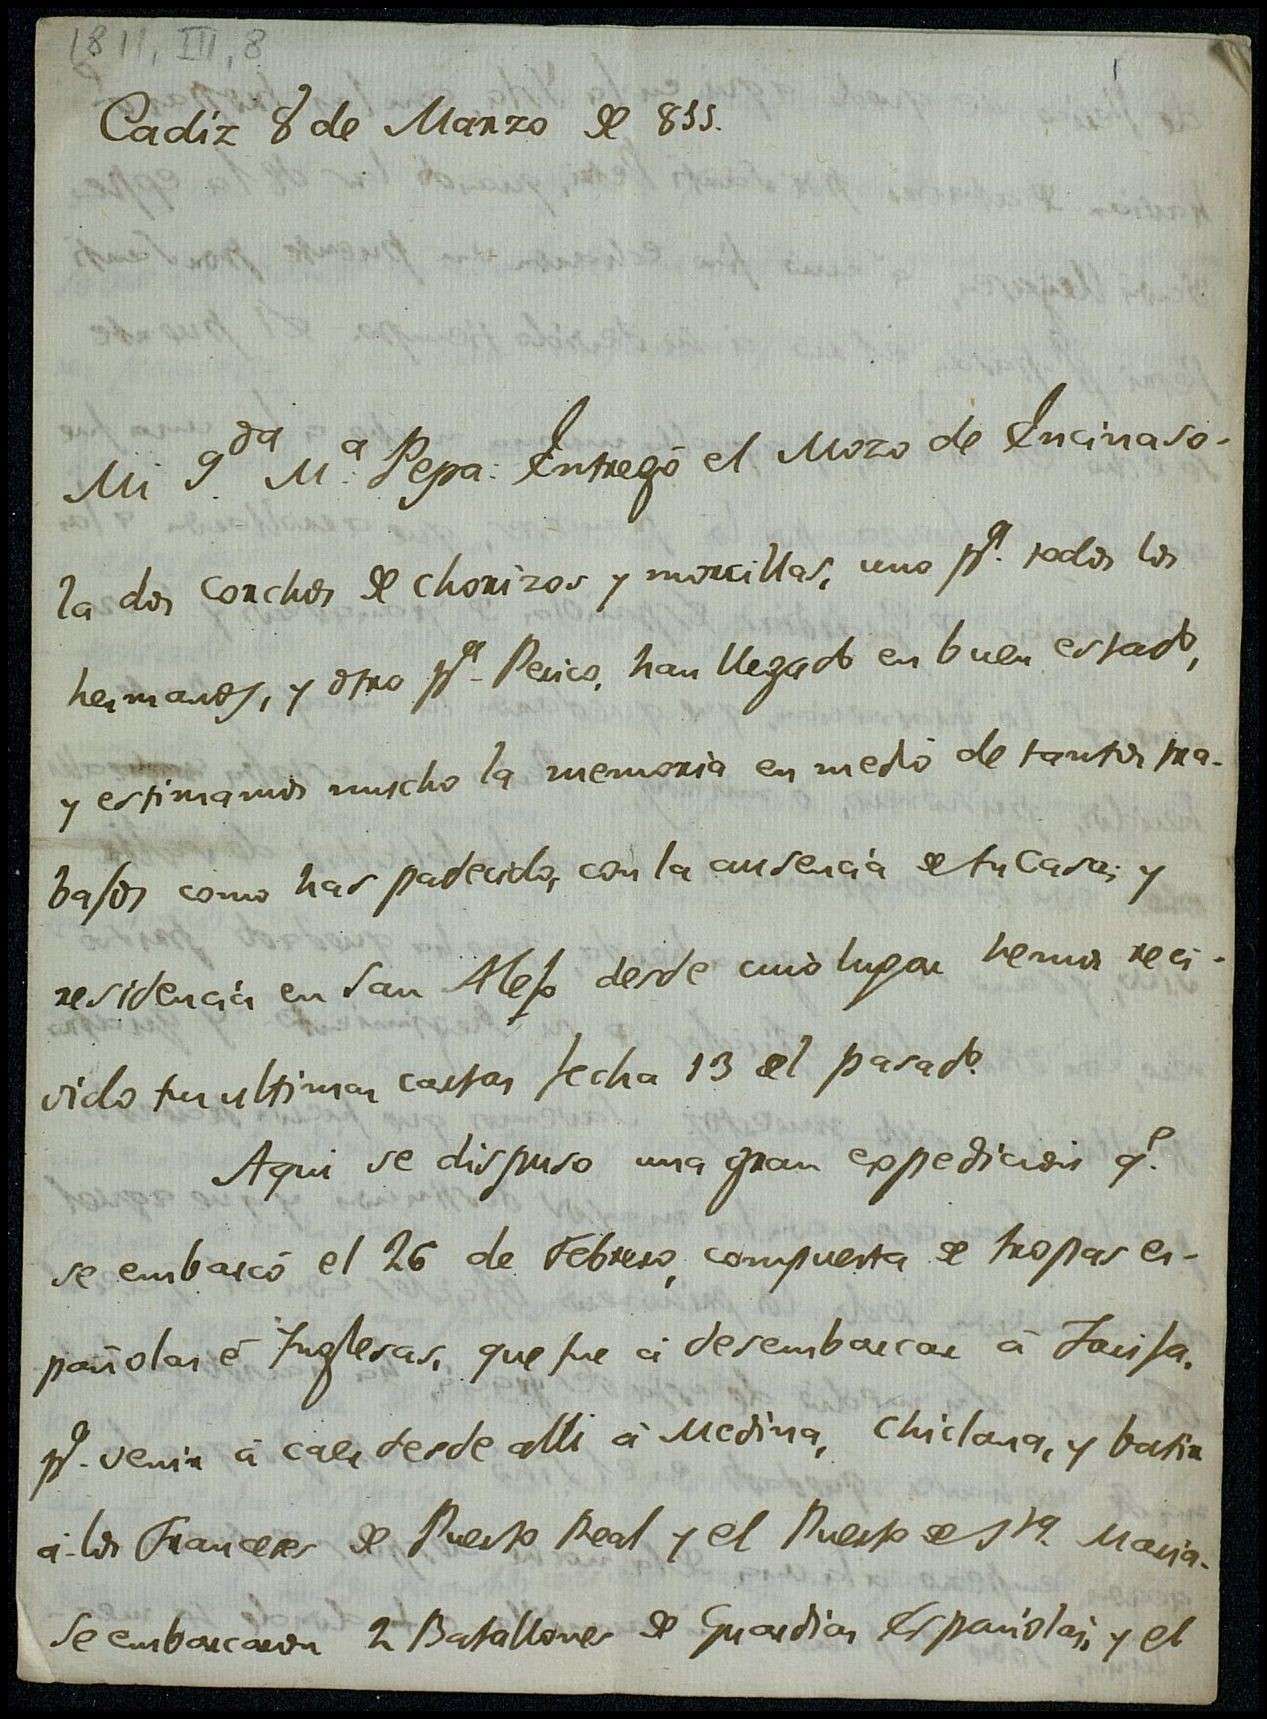 1811, III, 8
1
Cadiz 8 de Marzo de 811.
Mi q.da M.a Pepa: Entregó el Mozo de Encinaso-
la dos corchos de chorizos y morcillas, uno p.a todos los
hermanos, y otro p.a Perico, han llegado en buen estado,
y estimamos mucho la memoria en medio de tantos tra-
bajos como has padecido, con la ausencia de tu Casa; y
residencia en San Alejo, desde cuio lugar hemos reci-
vido tus ultimas cartas fecha 13 del pasado.
Aqui se dispuso una gran expedicion q.e
se embarcó el 26 de Febrero, compuesta de tropas es-
pañolas é Inglesas, que fue á desembarcar á Tarifa,
p.a venir á caer desde alli á Medina, Chiclana, y batir
a los Franceses de Puerto Real y el Puerto de S.ta Maria.
Se embarcaron 2 Batallones de Guardias Españolas, y el